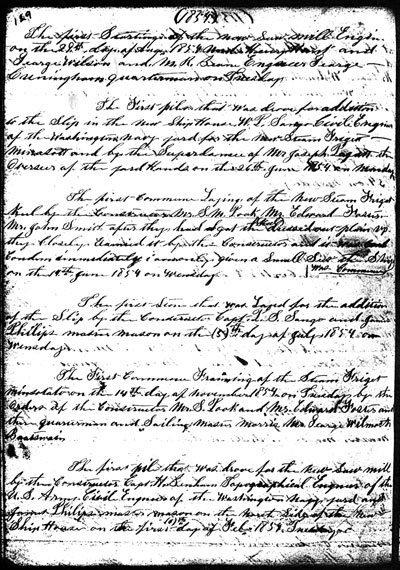 129
(1854)
The first Starting of the New Saw Mill Engin
on the 29th day of Aug 1854 and
George Wilson and M. R. Engineer George
Cunningham Quarterman on Tuesday
The First piler that was drove for addition
to the Slip in the New Ship House W. P. Sanger Civil Engin
of the Washington Navy yard for the New Steam Friget
Minasott and by the Superdance of Mr Joseph the
Overseer of the yard hands on the 26th June 1854 on Monday
The first Commune Laying of the New Steam Friget
Keel by the Constructor Mr. S. M. Pook Mr. Edward Foster
Mr. John Smith after they had got the Keel out plain
they Closely Examed it by the Constructor and it was
Condem immediately
on the 14th June 1854 on Wensday
The first Stone that was Laged for the addition
of the Slip by the Conducter Capt. P. S. Sanger and
Philips master mason on the (5)th day of July 1854 on
Wensday
The First Commune Fraiming of the Steam Friget
Minsolato on the 14th day of November 1854 on Tuesday by the
Orders of the Constructor Mr. S. Pook and Mr. Edward Foster and
the Quarterman and Sailing Master Morris Mr. George Wilmoth
Boatswain
The first pil that was drove for the New Saw mill
by the Constructor Capt. H. Benham Topographical Engineer of the
U. S. Army Civil Engineer of the Washington Navy yard and
Joseph Philips master mason on the North Side of the New
Ship House on the first day of Feb. 1854 Tuesday